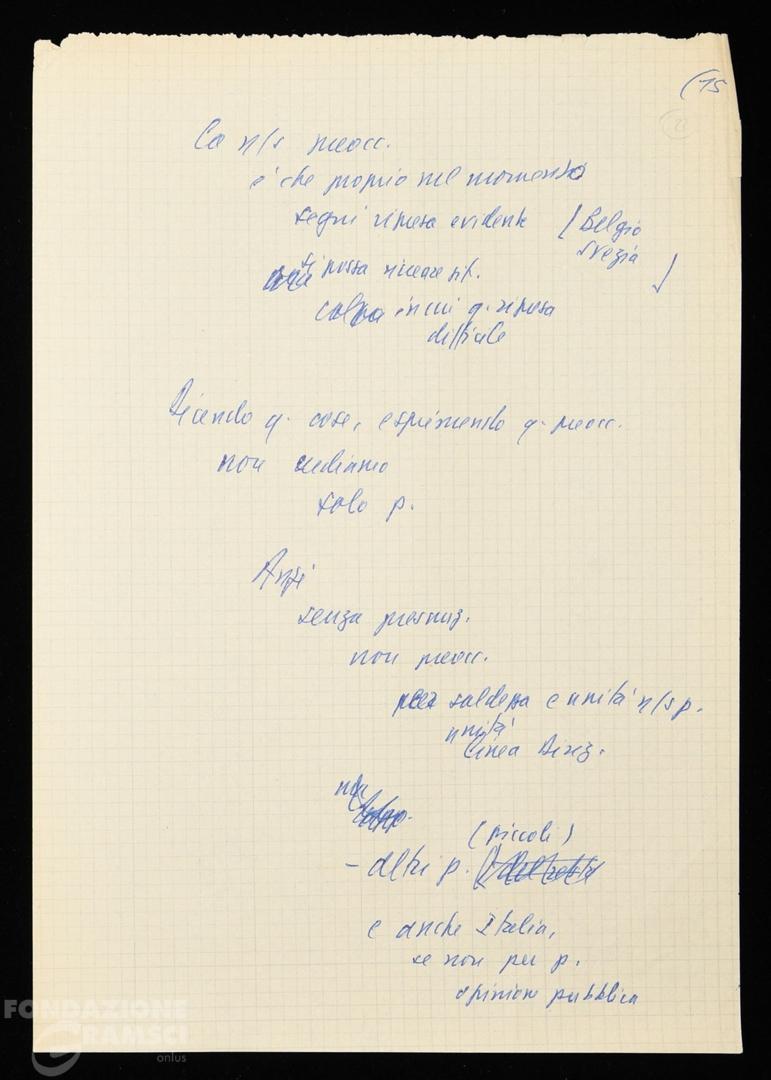 (15
La n/s preocc.
è che proprio nel momento
segni ripresa evidente (Belgio
Svezia )
si possa ricreare sit.
in cui q. ripresa
difficile
Dicendo q. cose, esprimendo q. preocc.
non vediamo
solo p.
Anzi
senza presunz.
non preocc.
per saldezza e unità n/s p.
unità
linea Direz.
ma
(piccoli)
- altri p.
e anche Italia,
se non per p.
opinione pubblica
FONDAZIONE
GRAMSCI
onlus